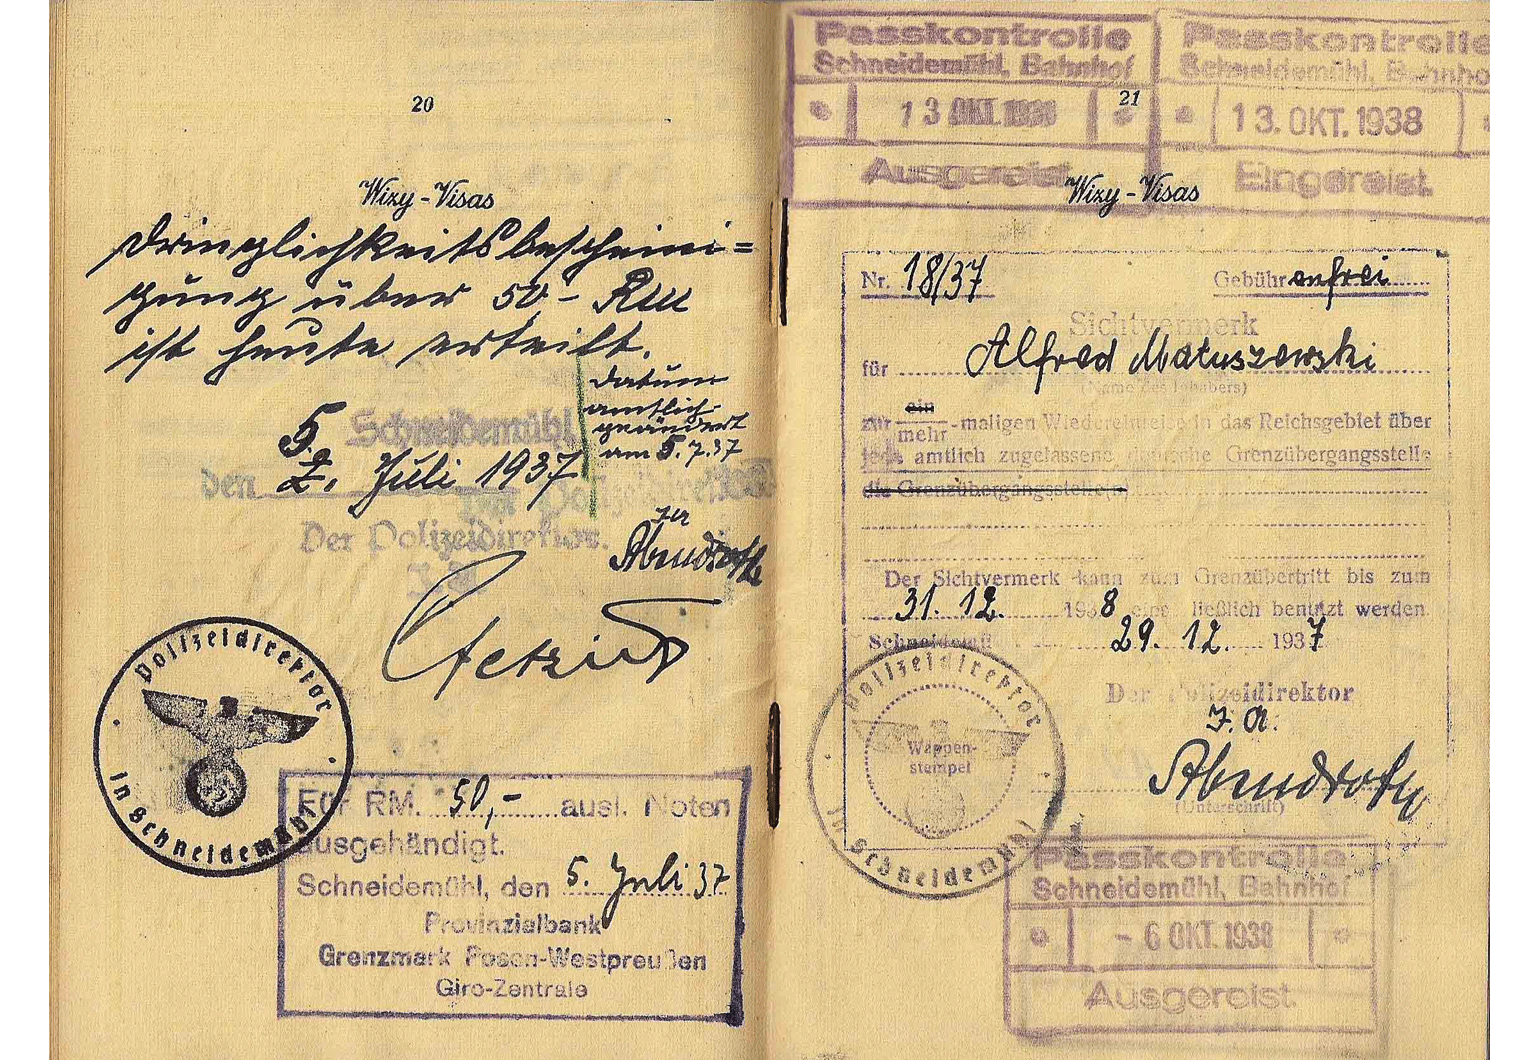 20
Wizy - Visas
Dringlichkeitsbescheini=
gung über 50 - RM
ist heute erteilt.
Datum
amtlich
geändert
am 5.7.37
Schneidemühl
5.
den 2. Juli 1937
Der Polizeidirektor.
Abendroth
Polizeidirektor
in Schneidemühl
Für RM. 50,- ausl. Noten
ausgehändigt.
Schneidemühl, den 5. Juli 37
Provinzialbank
Grenzmark Posen-Westpreußen
Giro-Zentrale
Passkontrolle
Schneidemühl, Bahnhof
13 OKT. 1938
Ausgereist
Passkontrolle
Schneidemühl, Bahnho
13. OKT. 1938
Eingereist.
21
Wizy - Visas
Nr. 18/37 Gebührenfrei
Sichtvermerk
für Alfred Matuszewski
(Name des Inhabers)
zur ein
mehr -maligen Wiedereinreise in das Reichsgebiet über
jede amtlich zugelassene deutsche Grenzübergangsstelle
die Grenzübergangsstelle(n)
Der Sichtvermerk kann zum Grenzübertritt bis zum
31. 12. 1938 einschließlich benutzt werden
Schneidemühl 29. 12. 1937
Der Polizeidirektor
J. A.
Abendroth
(Unterschrift)
Polizeidirektor
in Schneidemühl
Wappen-
stempel
Passkontrolle
Schneidemühl, Bahnhof
- 6 OKT. 1938
Ausgereist.